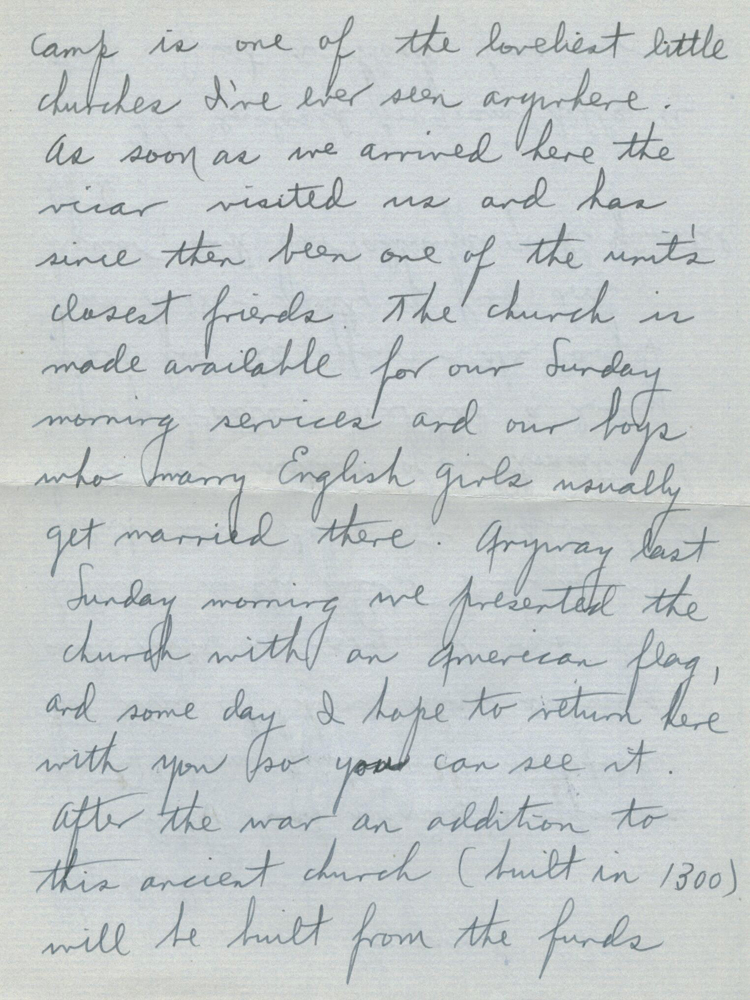 camp is one of the loveliest little
churches I've ever seen anywhere.
As soon as we arrived here the
vicar visited us and has
since then been one of the unit's
closest friends. The church is
made available for our Sunday
morning services and our boys
who marry English girls usually
get married there. Anyway last
Sunday morning we presented the
church with an American flag,
and some day I hope to return here
with you so you can see it.
After the war an addition to
this ancient church (built in 1300)
will be built from the funds